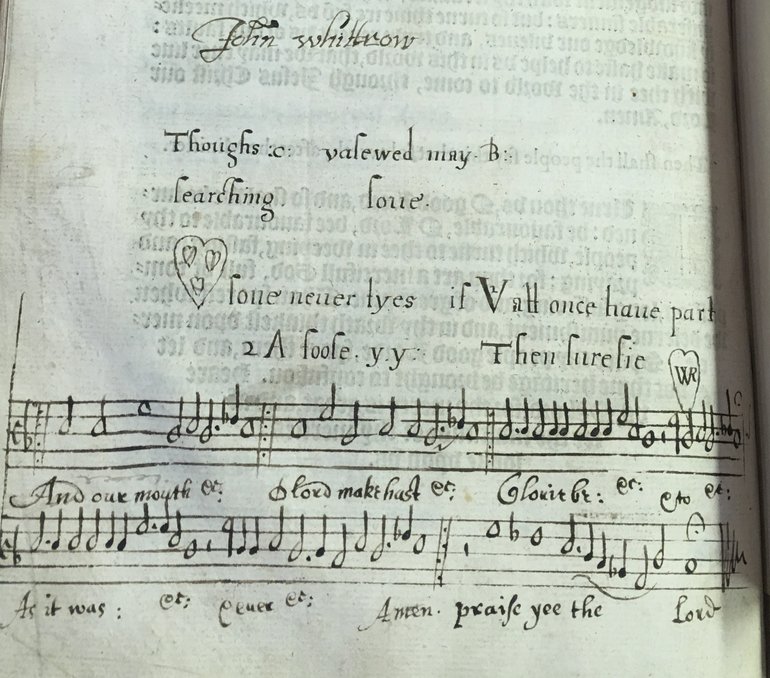 John whittrow
Thoughs :c: valewed may B:
searching love.
love never lyes if V att once have part
2 A foole . y.y: Then surelie
WR
And our mouth &c: O lord make hast &c: Glorie be : &c: & to &c:
As it was : &c: & ever &c: Amen. praise yee the Lord